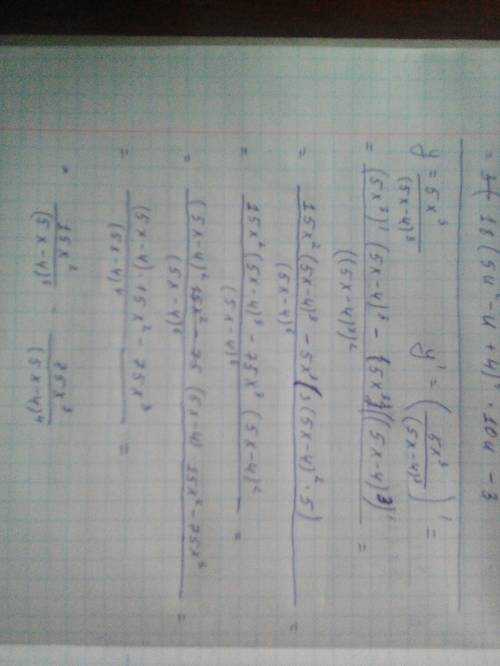 y = 5x³/(5x-4)³   y' = (5x³/(5x-4)³)' =
= (5x³)'(5x-4)³ - (5x³)((5x-4)³)' / ((5x-4)³)² =
= 15x²(5x-4)³ - 5x³(3(5x-4)²·5) / (5x-4)⁶ =
= 15x²(5x-4)³ - 75x³(5x-4)² / (5x-4)⁶ =
= (5x-4)² (5x-4) 15x² - 75x³ / (5x-4)⁶ =
= (5x-4)·15x² - 75x³ / (5x-4)⁴ =
= 15x²/(5x-4)³ - 75x³/(5x-4)⁴